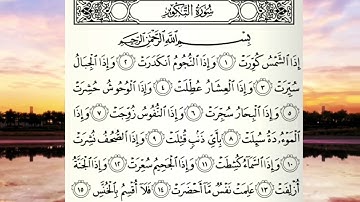 سُورَةُ التَّكْوِيرِ
بِسْمِ اللَّهِ الرَّحْمَٰنِ الرَّحِيمِ
إِذَا الشَّمْسُ كُوِّرَتْ ١ وَإِذَا النُّجُومُ انكَدَرَتْ ٢ وَإِذَا الْجِبَالُ
سُيِّرَتْ ٣ وَإِذَا الْعِشَارُ عُطِّلَتْ ٤ وَإِذَا الْوُحُوشُ حُشِرَتْ
٥ وَإِذَا الْبِحَارُ سُجِّرَتْ ٦ وَإِذَا النُّفُوسُ زُوِّجَتْ ٧ وَإِذَا
الْمَوْءُۥدَةُ سُئِلَتْ ٨ بِأَيِّ ذَنبٍ قُتِلَتْ ٩ وَإِذَا الصُّحُفُ نُشِرَتْ
١٠ وَإِذَا السَّمَاءُ كُشِطَتْ ١١ وَإِذَا الْجَحِيمُ سُعِّرَتْ ١٢ وَإِذَا الْجَنَّةُ
أُزْلِفَتْ ١٣ عَلِمَتْ نَفْسٌ مَّا أَحْضَرَتْ ١٤ فَلَا أُقْسِمُ بِالْخُنَّسِ ١٥